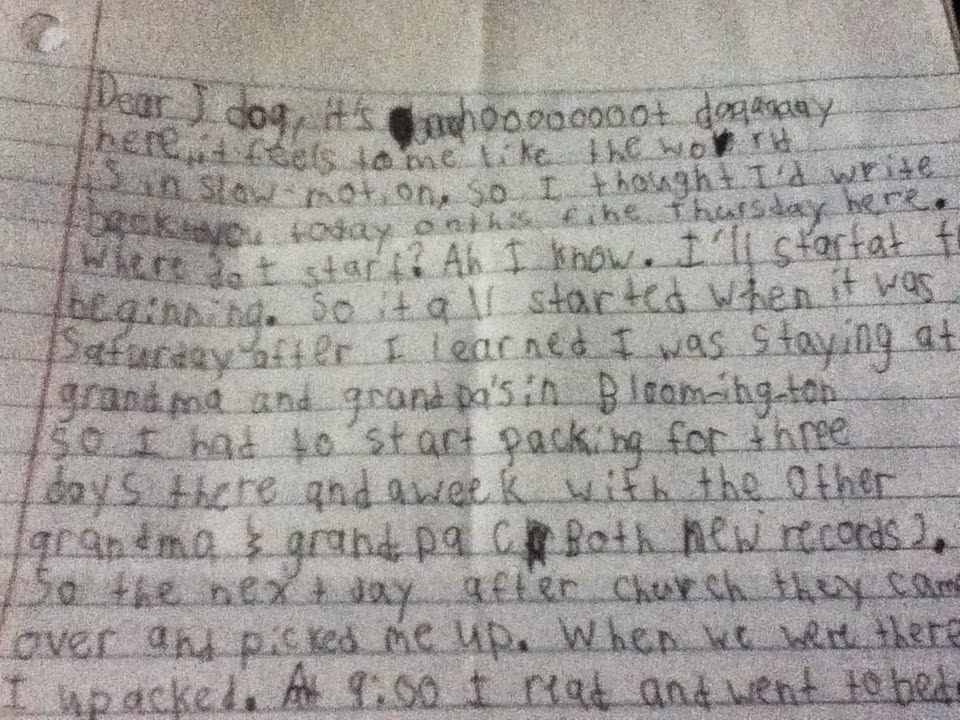 Dear J dog, it's hooooooooot dogaaaay
here, it feels to me like the world
is in slow-motion. so I thought I'd write
back to you today on this fine Thursday here.
Where do I start? Ah I know. I'll startat
beginning. So it all started when it was
Saturday after I learned I was staying at
grandma and grandpa's in Bloom-ing-ton
so I had to start packing for three
days there and aweek with the other
grandma & grandpa ( Both new records).
So the next day after church they cam
over and picked me up. When we were there
I upacked. At 9:00 I read and went to bed.